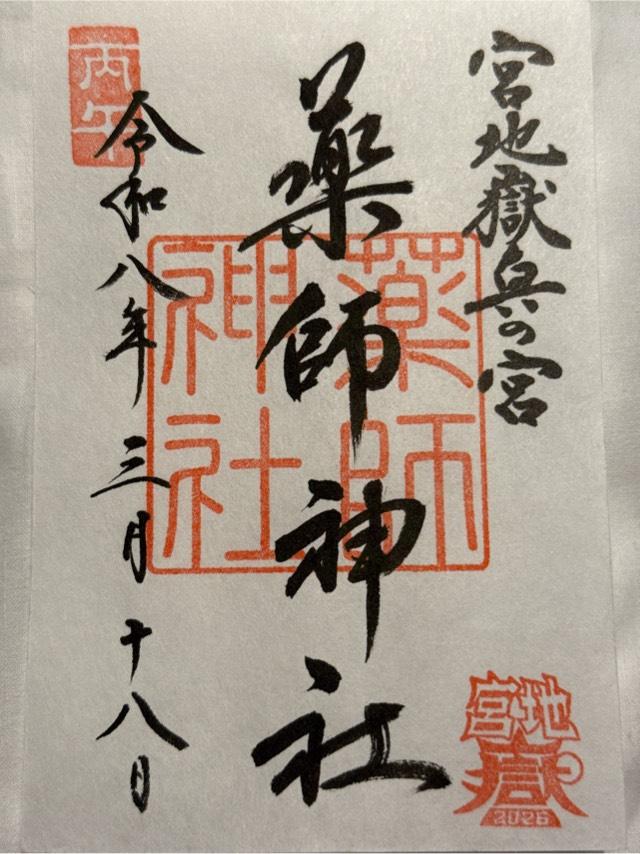 宮地嶽奥の宮
薬師神社
薬師
神社
丙午
令和八年三月十八日
宮地
嶽
2026